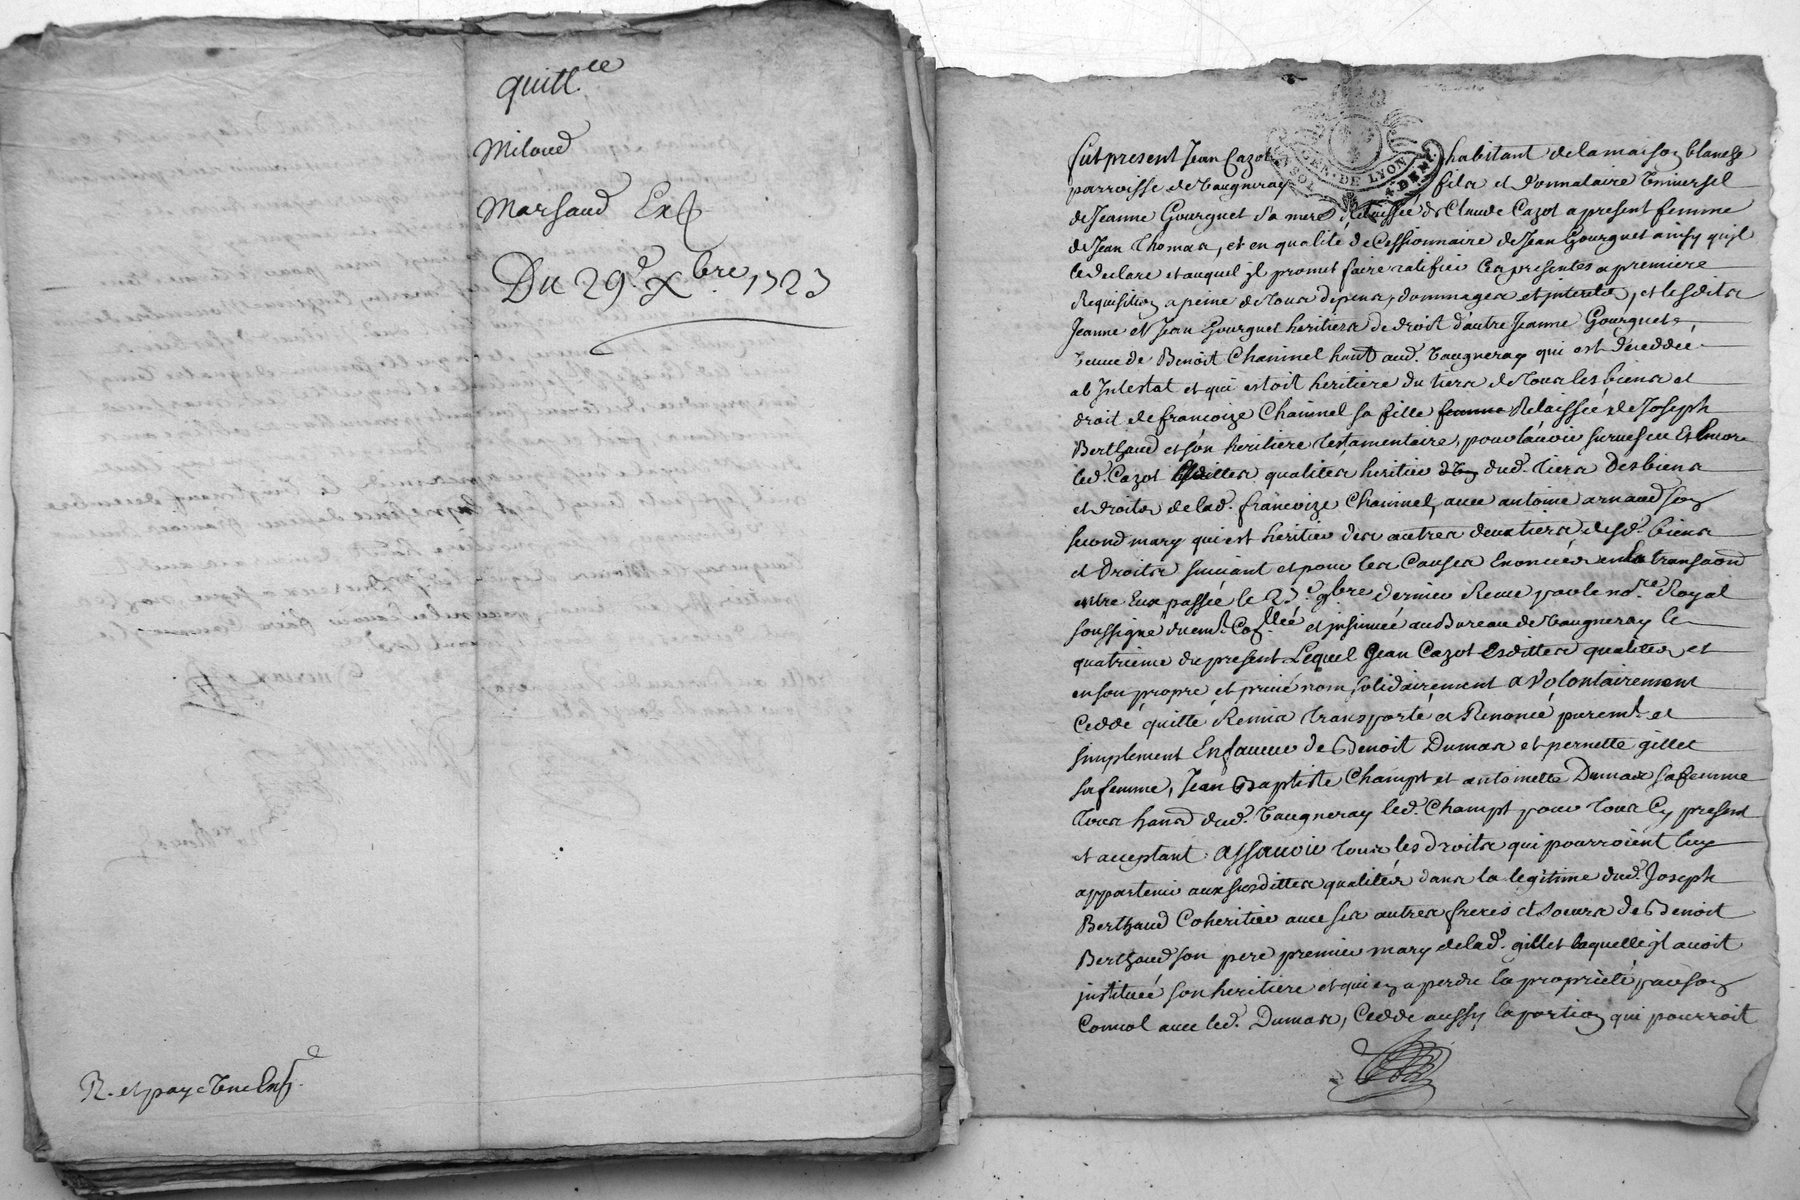 quitt.ce
Miloud
Marsaud Exp
Du 29.e xbre 1723
R. et payé une Exp.e
GEN. DE LYON
SOL
4 DEN.
fut present Jean Cazot habitant de la maison blanche
parroisse de Vaugneray fils et donnataire Vniversel
de Jeanne Gourguet sa mere delaissée de Claude Cazot a present femme
de Jean Thomas, et en qualité de Cessionnaire de Jean Gourguet ainsy qu'jl
le declare et auquel jl promet faire ratifier Ces presentes a premiere
Requisition a peine de tous depens, dommages et interets, et lesdits
Jeanne et Jean Gourguet heritiers de droit d'autre Jeanne Gourguet
veuve de Benoit Chaninel hant aud. Vaugneray qui est deceddée
ab Intestat et qui estoit heritiere du tiers de tous les biens et
droit de francoize Chaninel sa fille femme Relaissée de Joseph
Berthaud et son heritiere testamentaire, pour l'avoir survescu Et Encore
led. Cazot esdittes qualités heritier dud. tiers Des biens
et droits de lad. francoize Chaninel, avec antoine arnaud son
second mary qui est heritier des autres deux tiers desd. biens
et droits suivant et pour les Causes Enoncées en la transaon
entre Eux passée le 23.e 9bre dernier Receue par le no.re Royal
soussigné duem.t Co.llée et jnsinuée au Bureau de Vaugneray le
quatrieme du present Lequel Jean Cazot Esdittes qualités et
en son propre et privé nom solidairement a Volontairement
Ceddé quitté Remis transporté et Renoncé purem.t et
simplement En faveur de Benoit Dumas et pernette gillet
sa femme, Jean Baptiste Champt et antoinette Dumas sa femme
tous hans dud. Vaugneray led. Champt pour tous Cy present
et acceptant assavoir tous les droits qui pourroient luy
appartenir aux susdittes qualités dans la legitime dud. Joseph
Berthaud Coheritier avec ses autres freres et soeurs de Benoit
Berthaud son pere premier mary de lad. gillet laquelle jl avoit
jnstituée son heritiere et qui en a perdu la proprieté par son
Convol avec led. Dumas, Cedde aussy la portion qui pourroit